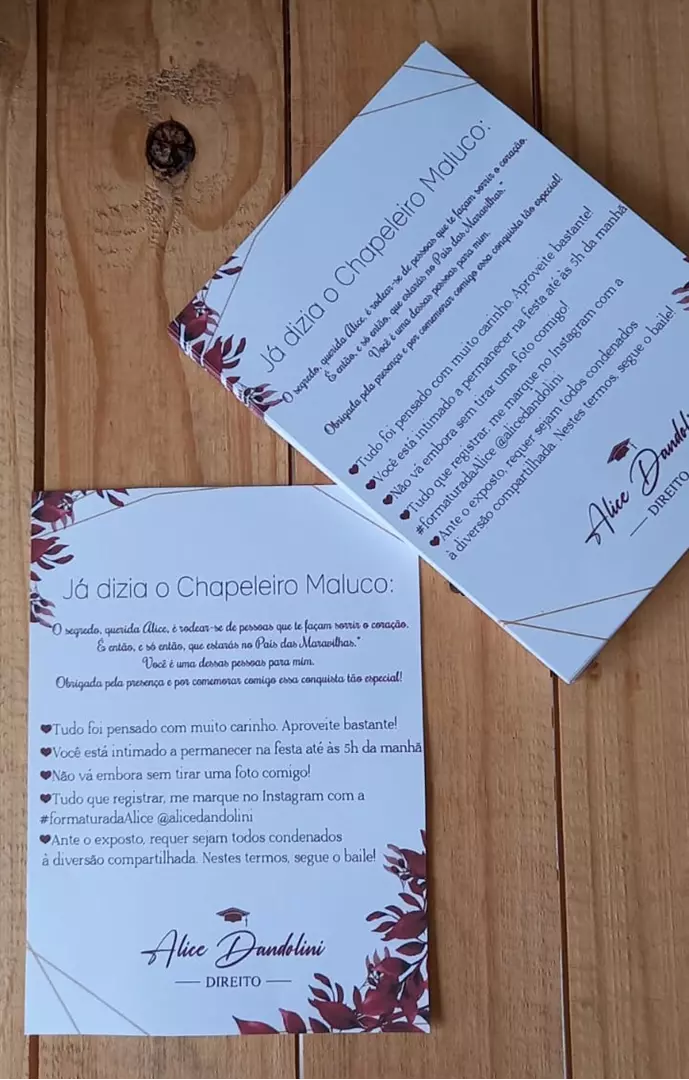 Já dizia o Chapeleiro Maluco:
"O segredo, querida Alice, é rodear-se de pessoas que te façam sorrir o coração.
É então, e só então, que estarás no País das Maravilhas."
Você é uma dessas pessoas para mim.
Obrigada pela presença e por comemorar comigo essa conquista tão especial!
♥Tudo foi pensado com muito carinho. Aproveite bastante!
♥Você está intimado a permanecer na festa até às 5h da manhã
♥Não vá embora sem tirar uma foto comigo!
♥Tudo que registrar, me marque no Instagram com a
#formaturadaAlice @alicedandolini
♥Ante o exposto, requer sejam todos condenados
à diversão compartilhada. Nestes termos, segue o baile!
Alice Dandolini
DIREITO
Já dizia o Chapeleiro Maluco:
O segredo, querida Alice, é rodear-se de pessoas que te façam sorrir o coração.
É então, e só então, que estarás no País das Maravilhas."
Você é uma dessas pessoas para mim.
Obrigada pela presença e por comemorar comigo essa conquista tão especial!
♥Tudo foi pensado com muito carinho. Aproveite bastante!
♥Você está intimado a permanecer na festa até às 5h da manhã
♥Não vá embora sem tirar uma foto comigo!
♥Tudo que registrar, me marque no Instagram com a
#formaturadaAlice @alicedandolini
♥Ante o exposto, requer sejam todos condenados
à diversão compartilhada. Nestes termos, segue o baile!
Alice Dandolini
DIREITO